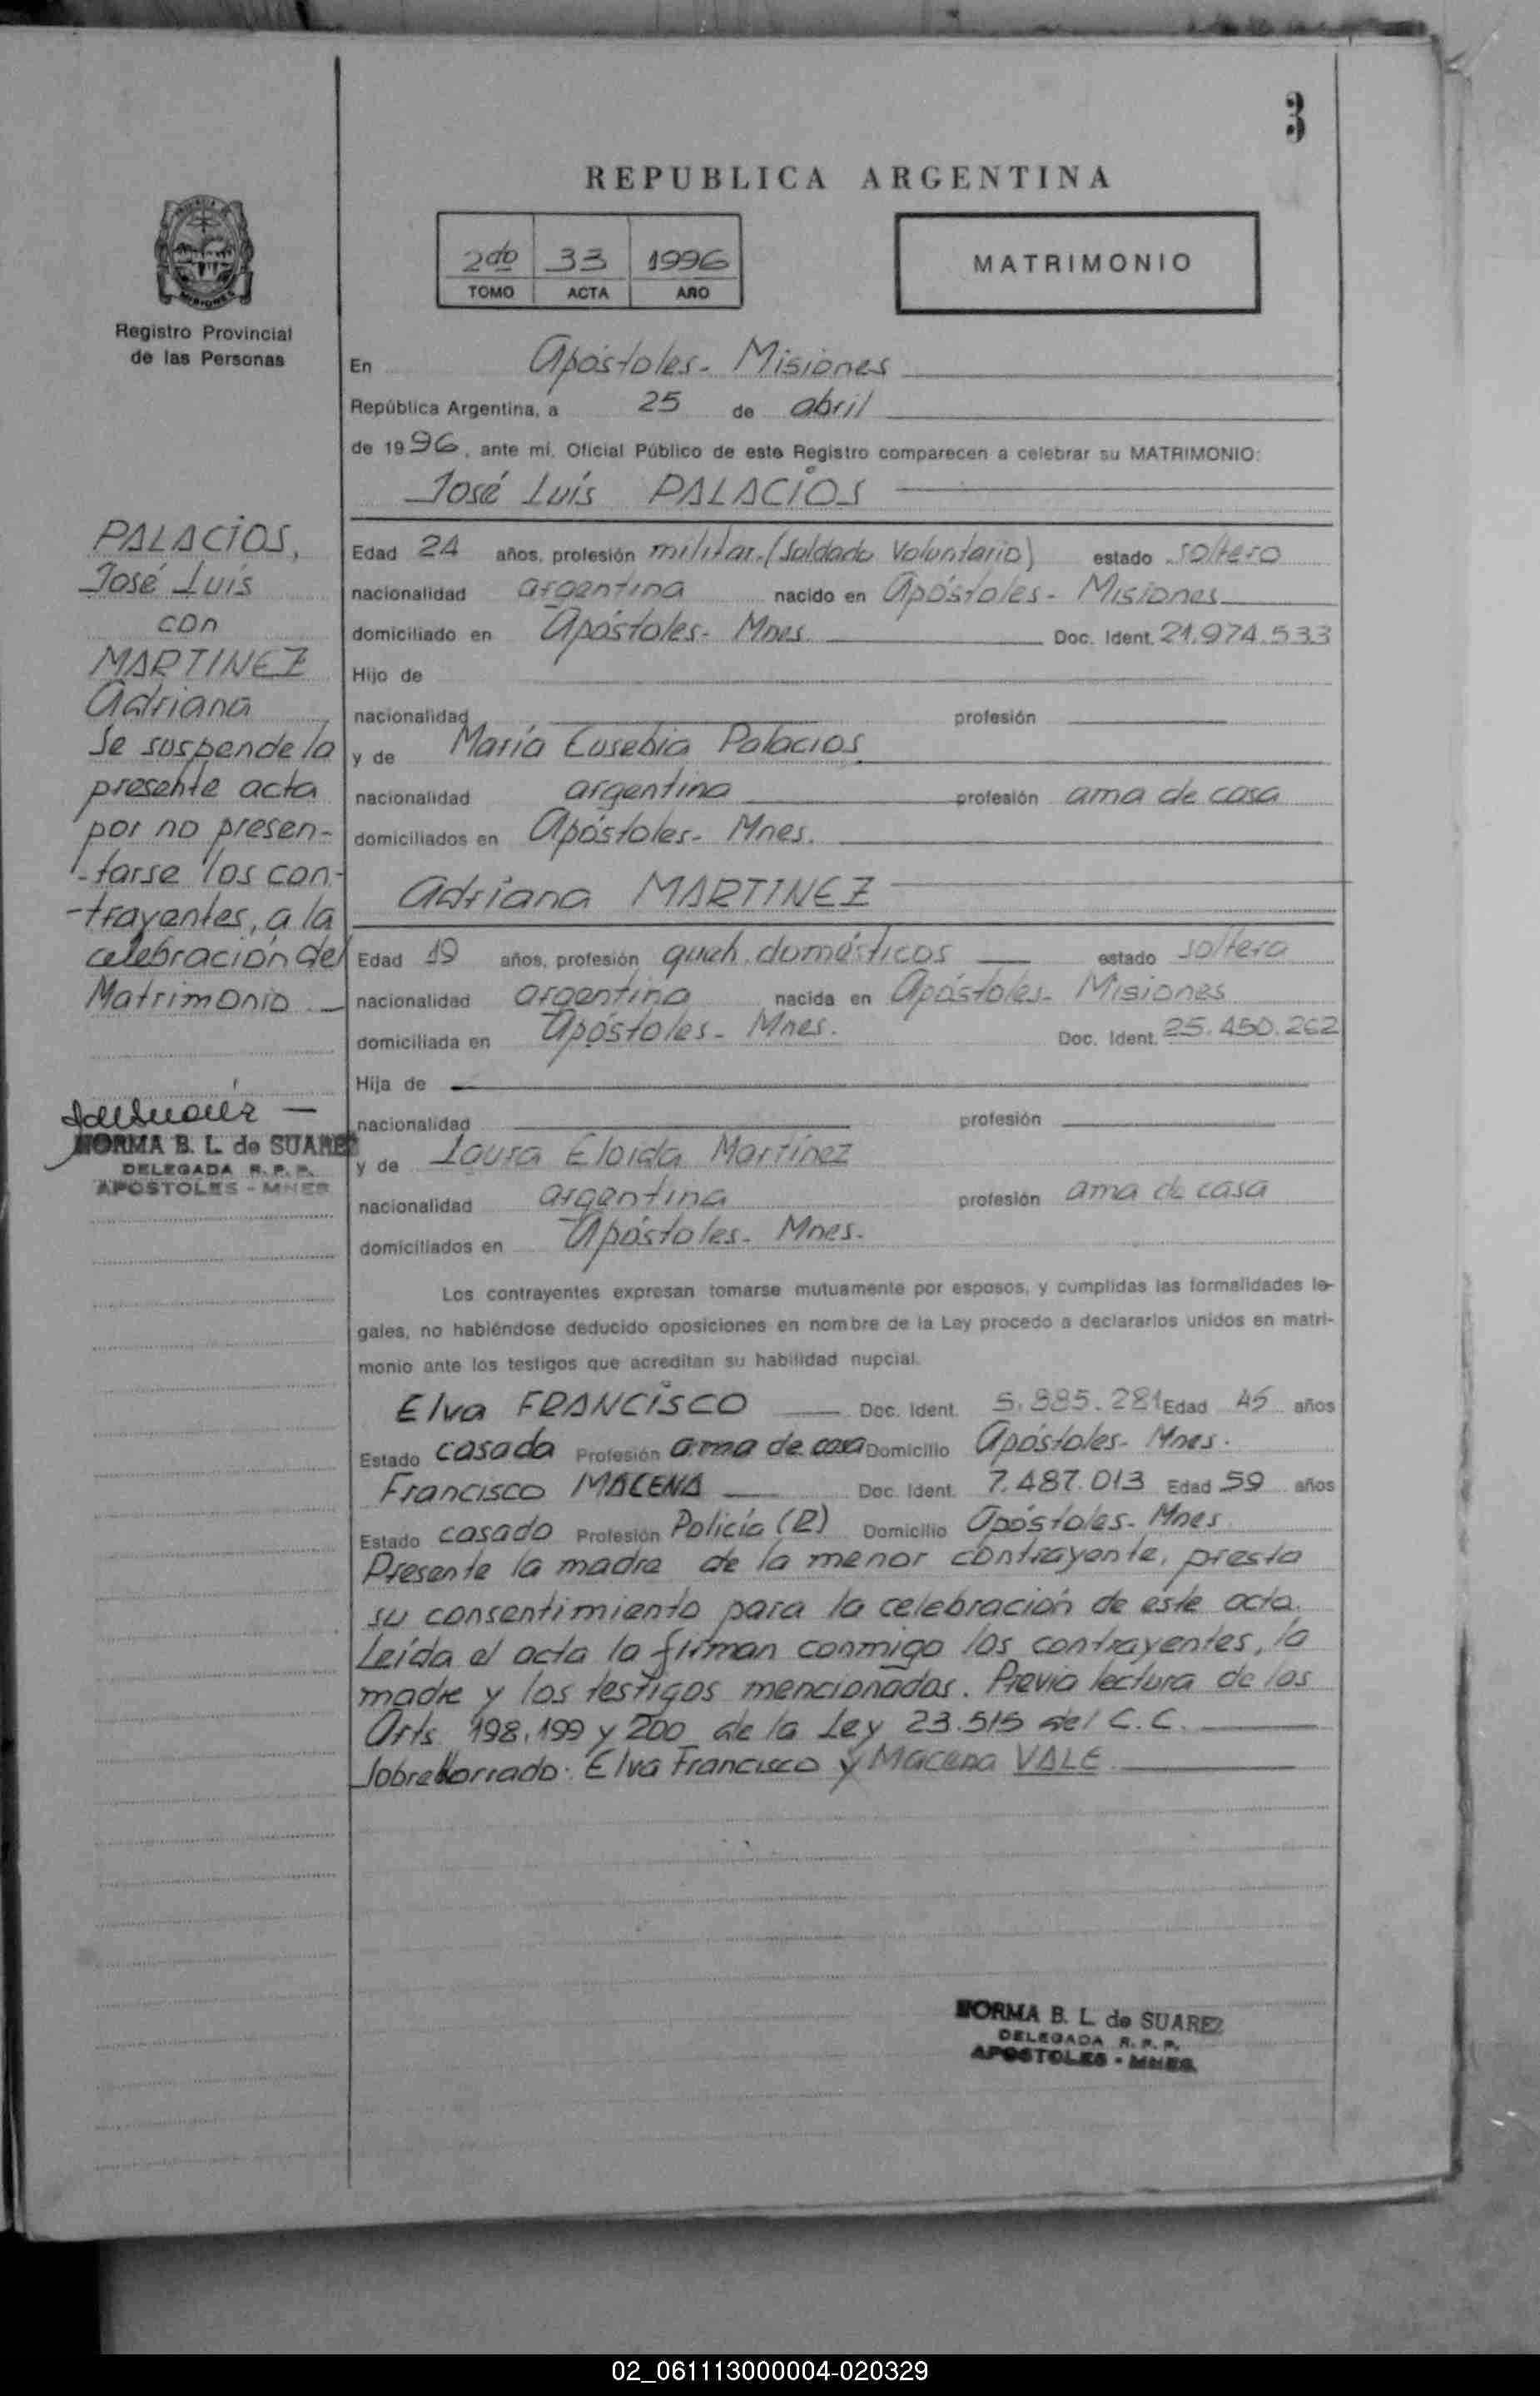 3
REPUBLICA ARGENTINA
2do 33 1996
TOMO ACTA AÑO
MATRIMONIO
MISIONES
Registro Provincial
de las Personas
En Apóstoles - Misiones
República Argentina, a 25 de abril
de 1996, ante mí, Oficial Público de este Registro comparecen a celebrar su MATRIMONIO:
José Luís PALACIOS
PALACIOS,
José Luís
con
MARTINEZ
Adriana
Se suspende la
presente acta
por no presen-
-tarse los con-
-trayentes, a la
celebración del
Matrimonio
NORMA B. L. de SUAREZ
DELEGADA R. P. P.
APOSTOLES - MNES
Edad 24 años, profesión militar. (Soldado Voluntario) estado soltero
nacionalidad argentina nacido en Apóstoles - Misiones
domiciliado en Apóstoles - Mnes. Doc. Ident. 21.974.533
Hijo de
nacionalidad profesión
y de María Eusebia Palacios
nacionalidad argentina profesión ama de casa
domiciliados en Apóstoles - Mnes.
Adriana MARTINEZ
Edad 19 años, profesión queh. domésticos estado soltera
nacionalidad argentina nacida en Apóstoles - Misiones
domiciliada en Apóstoles - Mnes. Doc. Ident. 25.450.262
Hija de
nacionalidad profesión
y de Laura Eloida Martínez
nacionalidad argentina profesión ama de casa
domiciliados en Apóstoles - Mnes.
Los contrayentes expresan tomarse mutuamente por esposos, y cumplidas las formalidades le-
gales, no habiéndose deducido oposiciones en nombre de la Ley procedo a declararlos unidos en matri-
monio ante los testigos que acreditan su habilidad nupcial.
Elva FRANCISCO Doc. Ident. 5.885.281 Edad 45 años
Estado casada Profesión ama de casa Domicilio Apóstoles - Mnes.
Francisco MACENA Doc. Ident. 7.487.013 Edad 59 años
Estado casado Profesión Policía (R) Domicilio Apóstoles - Mnes.
Presente la madre de la menor contrayente, presta
su consentimiento para la celebración de este acta.
Leída el acta la firman conmigo los contrayentes, la
madre y los testigos mencionados. Previa lectura de los
Arts. 198, 199 y 200 de la Ley 23.515 del C.C.
Sobreborrado: Elva Francisco y Macena VALE.
NORMA B. L. de SUAREZ
DELEGADA R. P. P.
APOSTOLES - MNES.
02_061113000004-020329